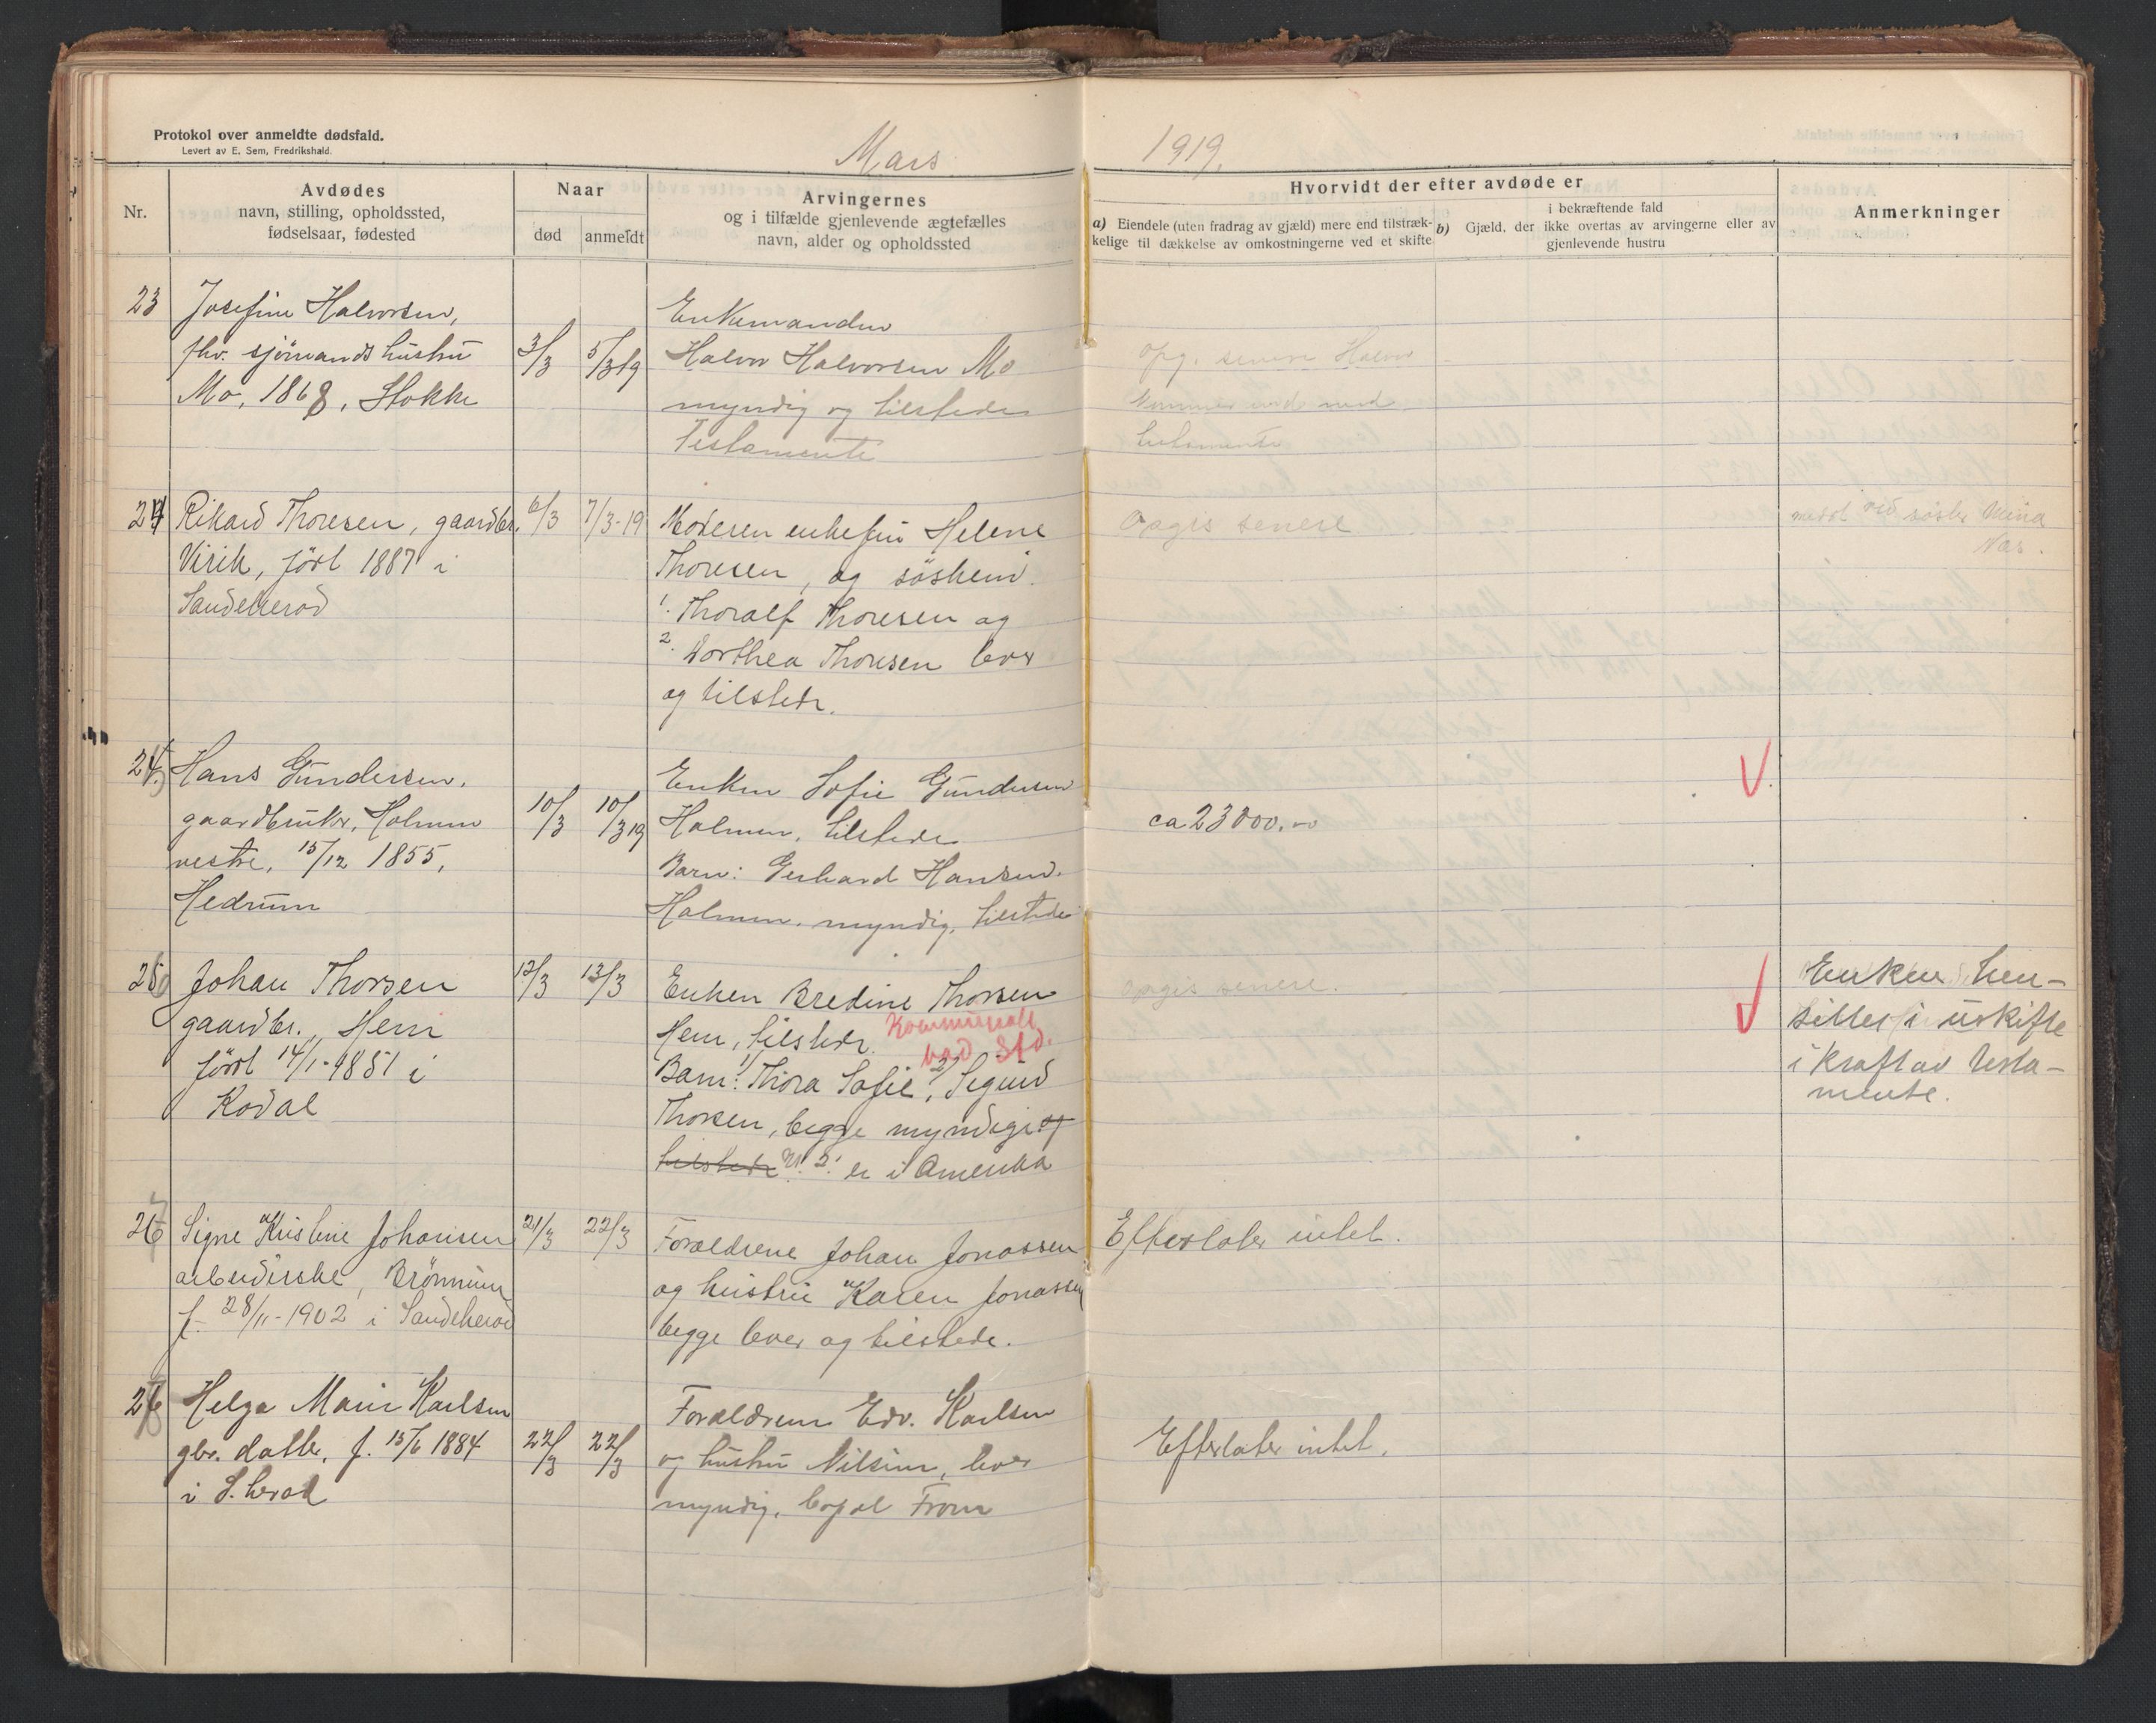 Protokol over anmeldte dødsfald.
Levert av E. Sem, Fredrikshald.
Mars
1919.
Nr.
Avdødes
navn, stilling, opholdssted,
fødselsaar, fødested
Naar
død
anmeldt
Arvingernes
og i tilfælde gjenlevende ægtefælles
navn, alder og opholdssted
Hvorvidt der efter avdøde er
a) Eiendele (uten fradrag av gjæld) mere end tilstræk-
kelige til dækkelse av omkostningerne ved et skifte
i bekræftende fald
b) Gjæld, der ikke overtas av arvingerne eller av
gjenlevende hustru
Anmerkninger
23
Josefine Halvorsen,
fhv. sjømands hustru
Mo, 1868, Stokke
3/3
5/3 19
Enkemanden
Halvor Halvorsen Mo
myndig og tilstede
Testamente
Opg. senere Halvor
med
testamente
24
Rikard Thoresen, gaardbr.
Virik, født 1887 i
Sandeherad
6/3
7/3-19
Moderen enkefru Helene
Thoresen, og søsken
1. Thoralf Thoresen og
2. Dorthea Thoresen lever
og tilstede.
Opgis senere
søster
Hans Gundersen,
gaardbruker, Holmen
vestre, 15/12 1855,
Hedrum
10/3
10/3 19
Enken Sofie Gundersen
Holmen, tilstede
Barn: Gerhard Hansen
Holmen, myndig, tilstede
ca 23000.00
Johan Thorsen
gaardbr., Hem
født 14/1-1851 i
Kodal
12/3
13/3
Enken Bredine Thorsen
Hem, tilstede.
Kommunalt
Barn: 1/ Thora Sofie, 2/ Sigurd
Thorsen, begge myndige og
tilstede N. 2. er i Amerika
Opgis senere.
Enken hen-
sitter i uskifte
i kraft av testa-
mente.
Signe Kristine Johansen
arbeiderske, Brønnum
f. 28/11-1902 i Sandeherad
21/3
22/3
Forældrene Johan Jonassen
og hustru Karen Jonassen
begge lever og tilstede.
Efterlater intet.
Helga Marie Karlsen
gbr. datter, f. 15/6 1884
i S.herad
22/3
22/3
Forældrene Edv. Karlsen
og hustru Nilsine, lever
myndig, bopæl From
Efterlater intet.